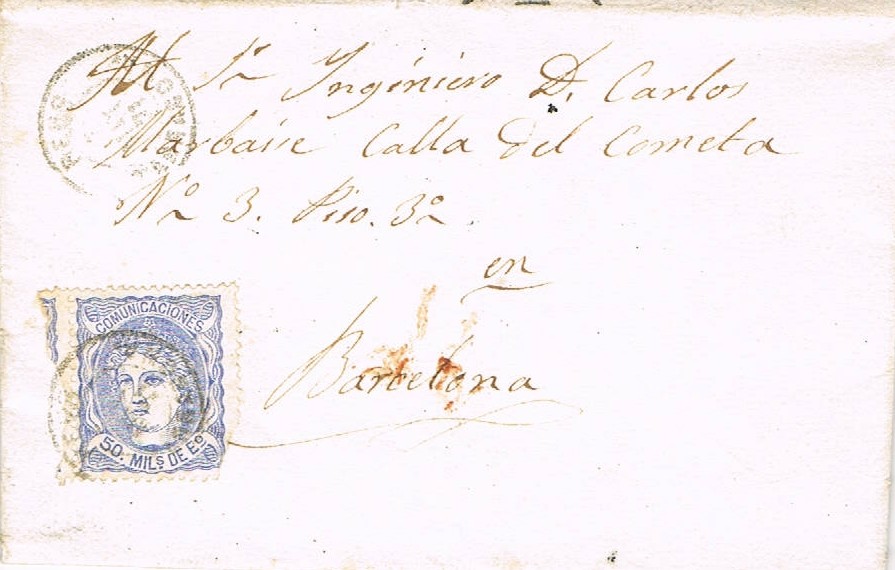 Al Sr Ingéniero D. Carlos
Marbaise Calla del Cometa
Nº 3. Piso. 3º
en
Barcelona
COMUNICACIONES
50. MILS DE Eº